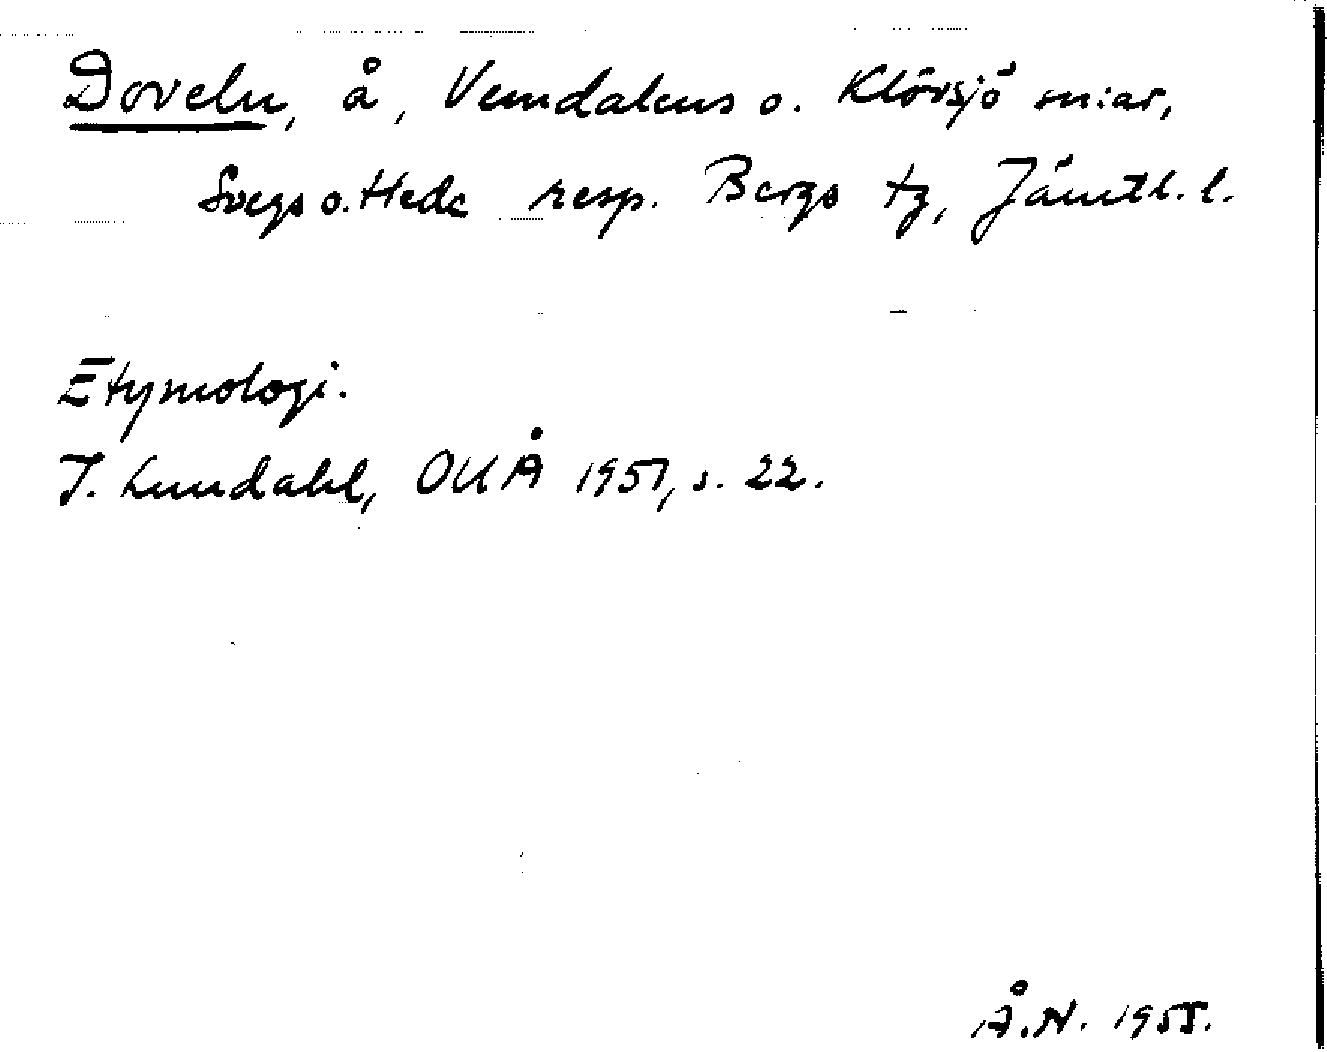 Doveln, å, Vemdalens o. Klövsjö sn:ar,
Svegs o. Hede resp. Bergs tg, Jämtl. l.
Etymologi.
I. Lundahl, OUÅ 1951, s. 22.
Å.N. 1955.